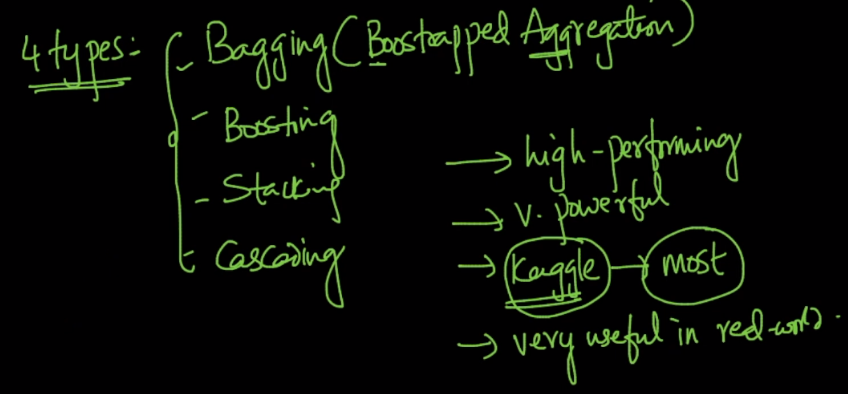 4 types:- - Bagging (Boostrapped Aggregation)
- Boosting
- Stacking
- Cascading
→ high-performing
→ v. powerful
→ Kaggle → most
→ very useful in real-world.